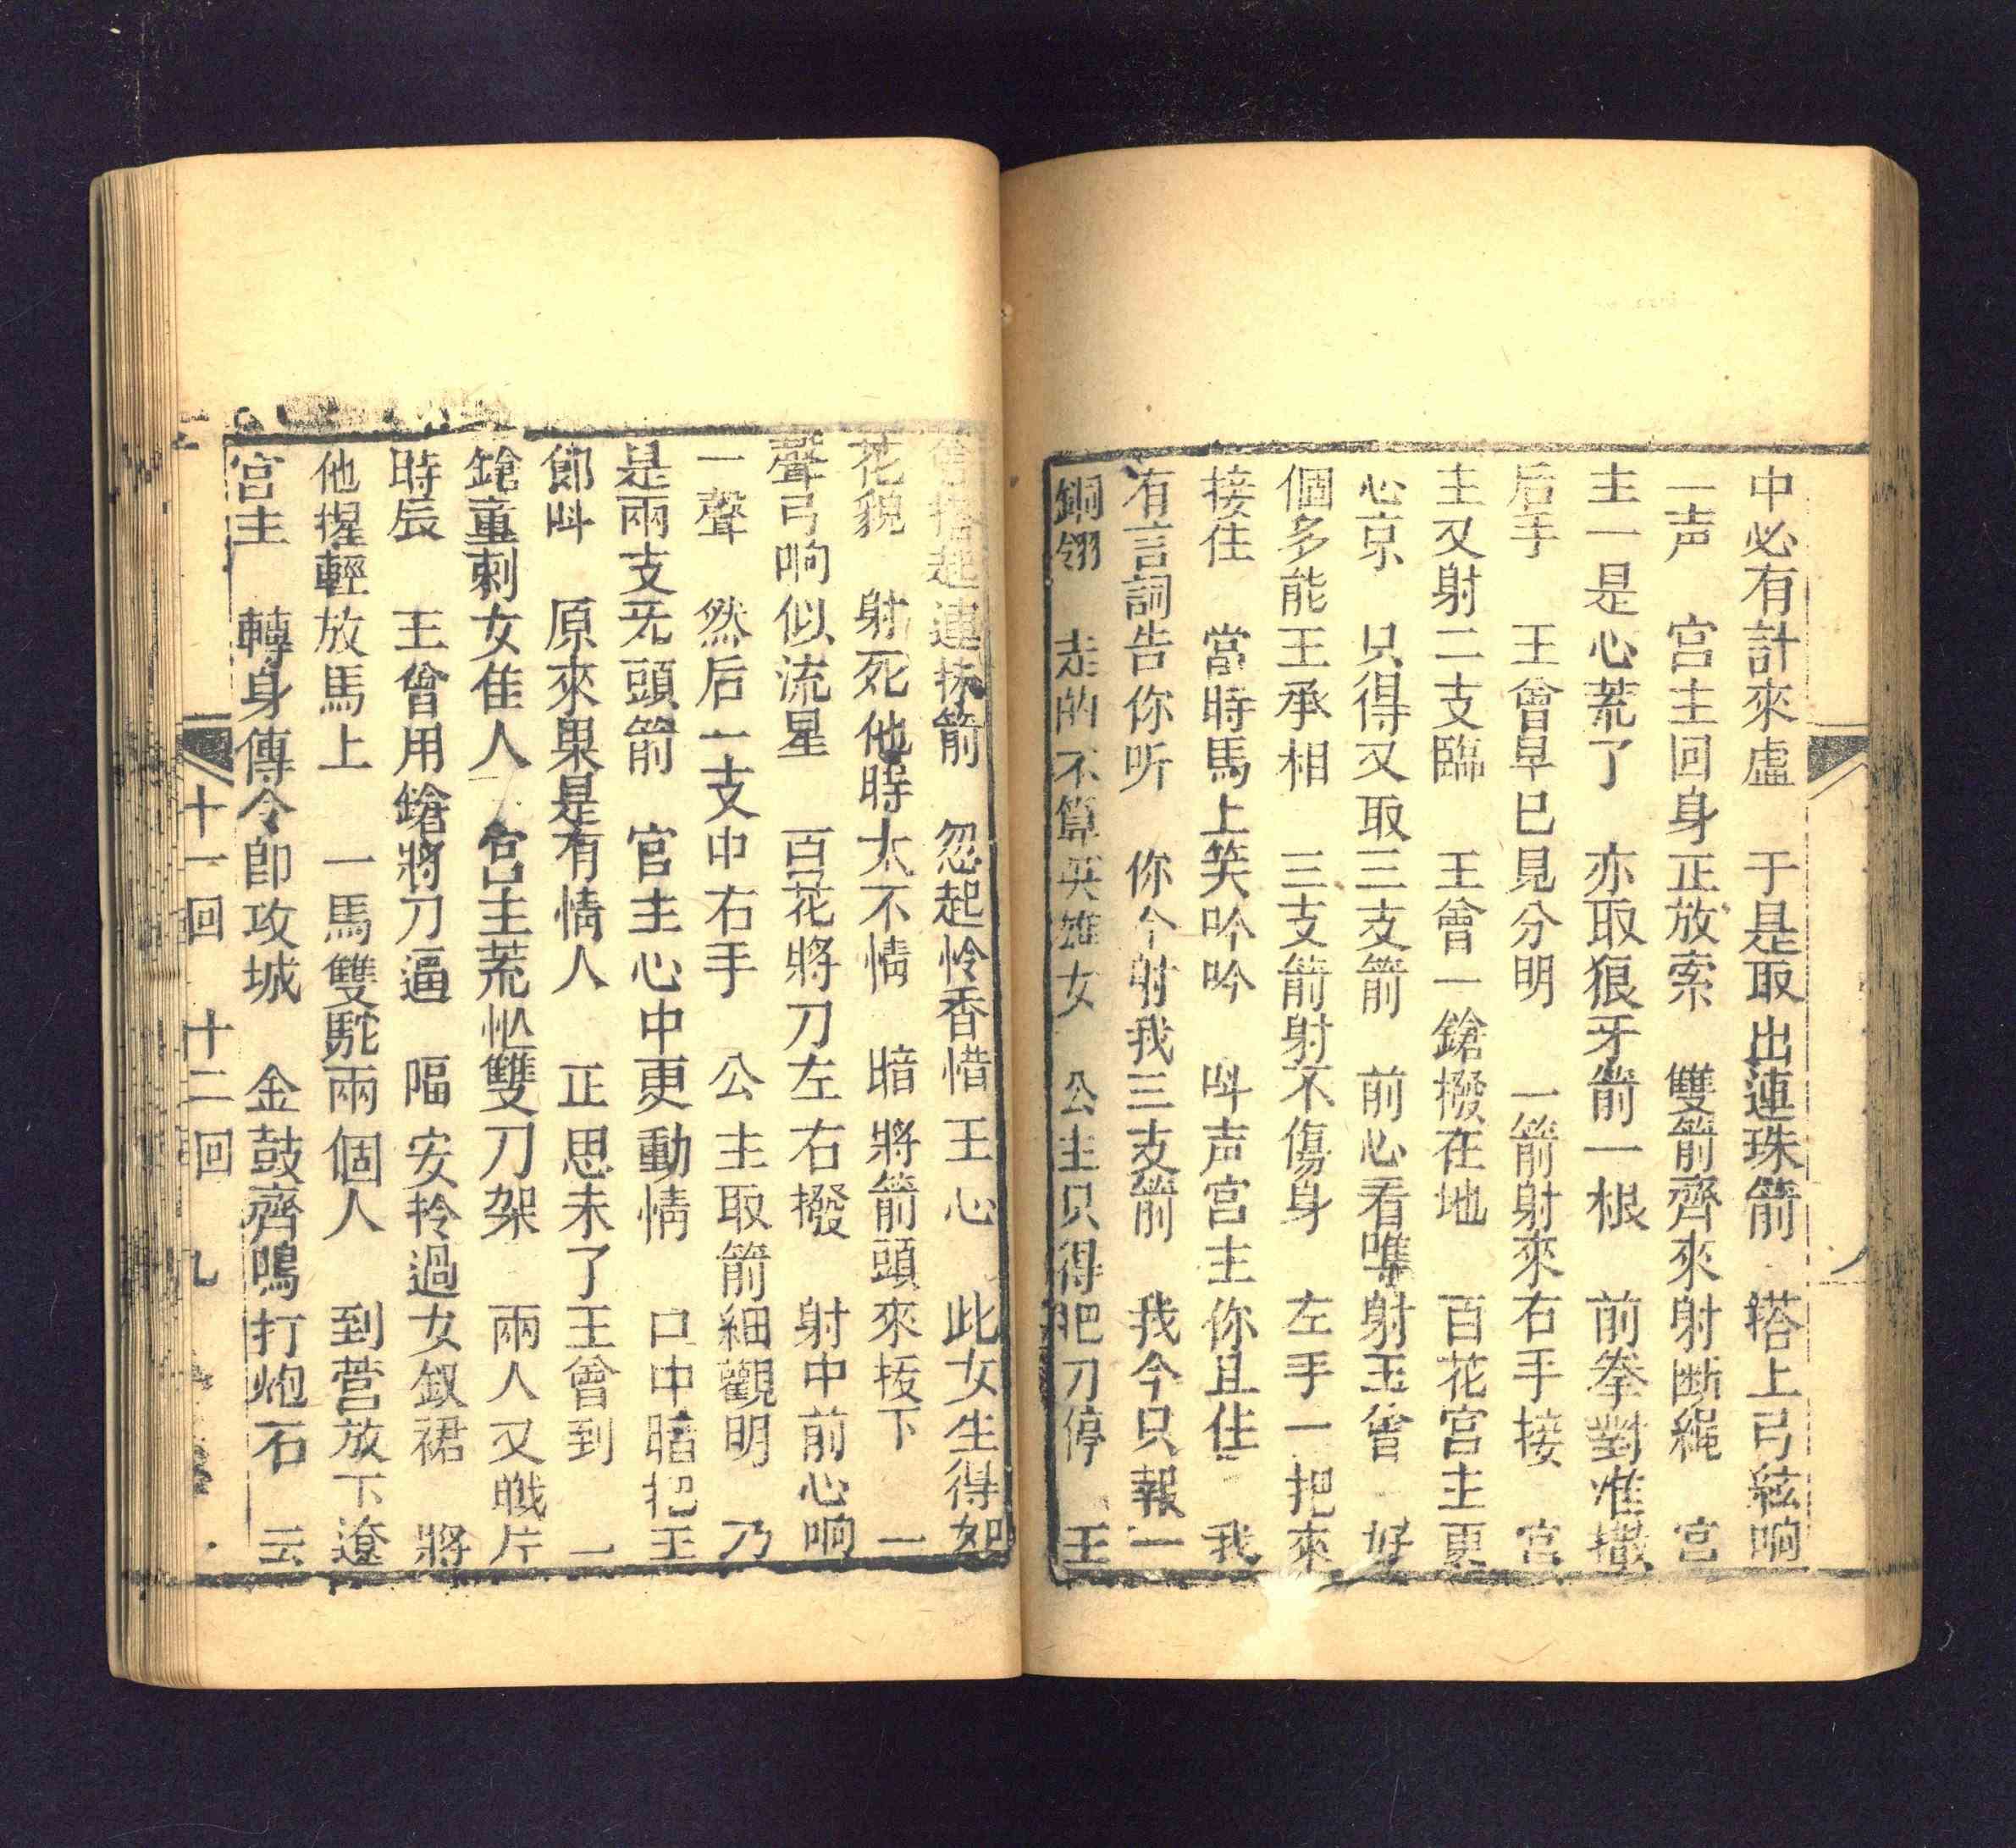 中必有計來虛　于是取出連珠箭　搭上弓絃响
一声　宫主回身正放索　雙箭齊來射断繩　宫
主一是心荒了　亦取狼牙箭一根　前拳對准撒
后手　王曾早已見分明　一箭射來右手接　宫
主又射二支臨　王曾一鎗撥在地　百花宫主更
心京　只得又取三支箭　前心看準射王曾　好
個多能王承相　三支箭射不傷身　左手一把來
接住　當時馬上笑吟吟　呌声宫主你且住　我
有言詞告你听　你今射我三支箭　我今只報一
銅翎　走的不算英雄女　公主只得把刀停　王
曾搭起連珠箭　忽起怜香惜王心　此女生得如
花貌　射死他時太不情　暗將箭頭來拔下　一
聲弓响似流星　百花將刀左右撥　射中前心响
一聲　然后一支中右手　公主取箭細觀明　乃
是兩支无頭箭　宫主心中更動情　口中暗把王
郎呌　原來果是有情人　正思未了王曾到　一
鎗童刺女隹人　宫主荒忙雙刀架　兩人又戰片
時辰　王曾用鎗將刀逼　嘔安拎過女釵裙　將
他捏輕放馬上　一馬雙駝兩個人　到营放下遼
宫主　轉身傳令卽攻城　金鼓齊鳴打炮石　云
十一回　十二回　九